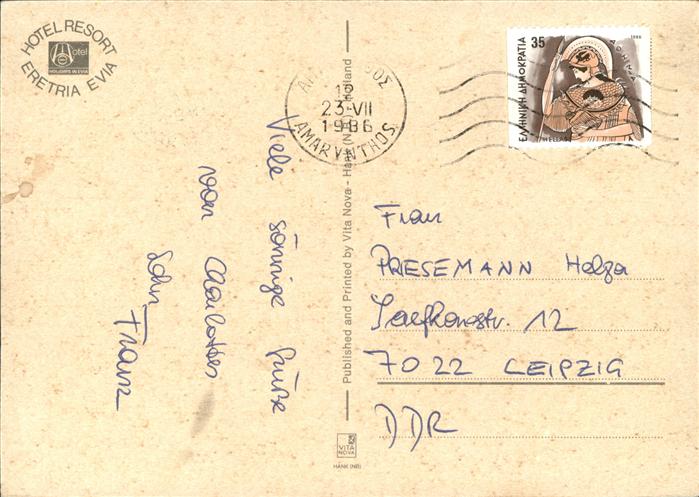 HOTEL RESORT
Hotel
HOLIDAYS IN EVIA
ERETRIA EVIA
Viele sonnige Grüße
von Charlottes
Sohn Franz
Published and Printed by Vita Nova - Hank (NB) - Holland
VITA NOVA
HANK (NB)
12
23-VII
1986
AMARYNTHOS
35
1986
ΑΘΗΝΑ
ΕΛΛΗΝΙΚΗ ΔΗΜΟΚΡΑΤΙΑ
HELLAS
Frau
PRIESEMANN Helga
12
7022 LEIPZIG
DDR